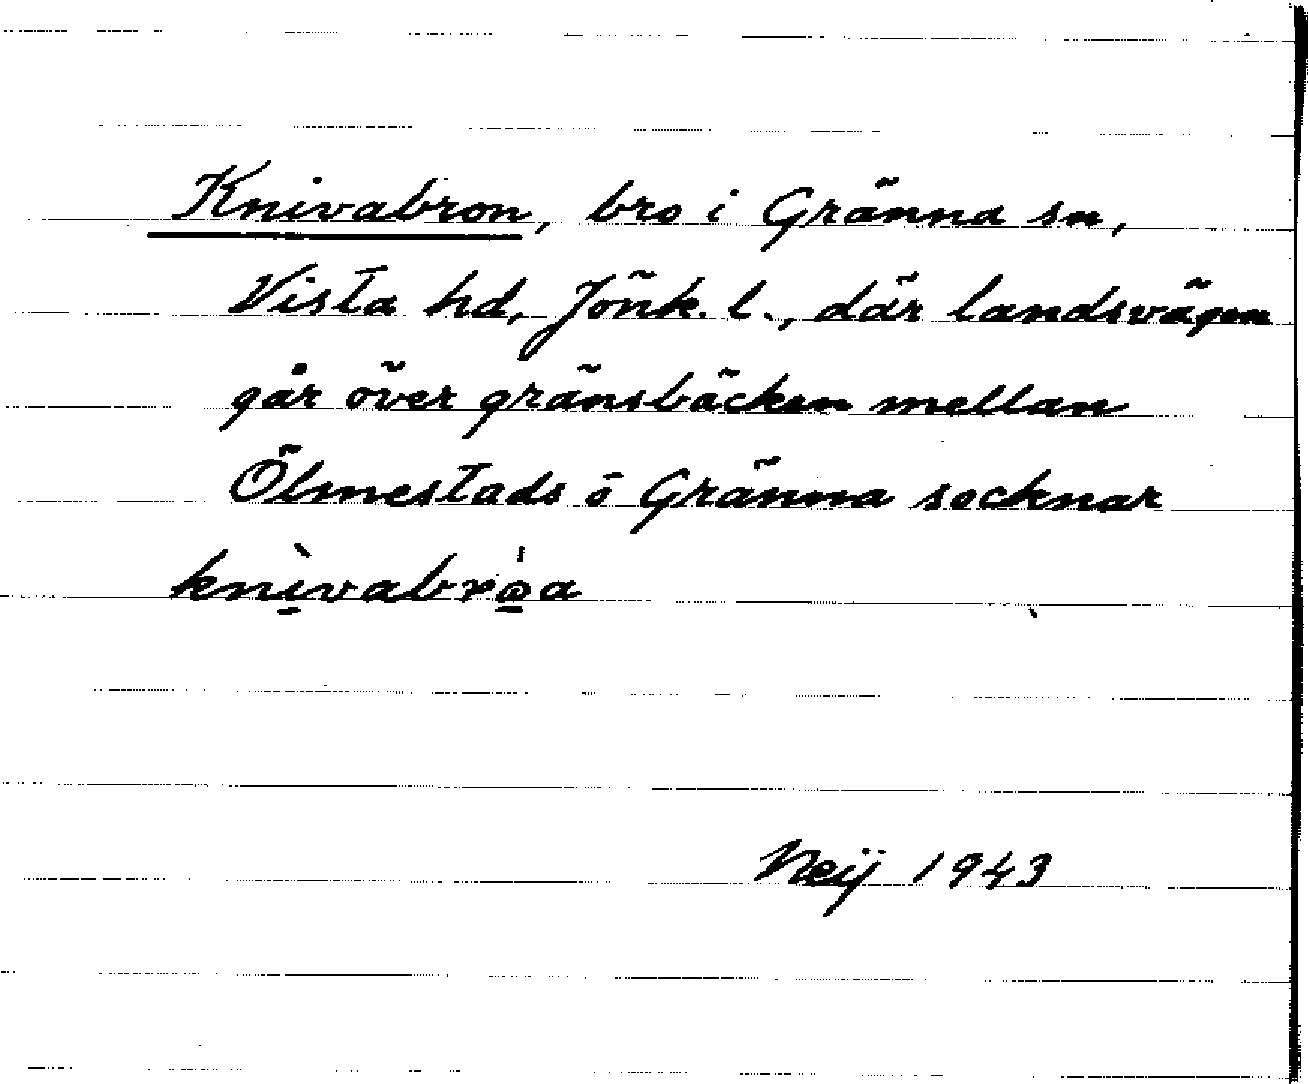 Knivabron, bro i Gränna sn,
Vista hd, Jönk. l., där landsvägen
går över gränsbäcken mellan
Ölmestads o Gränna socknar
knì̱vabro̱̍a
Neij 1943